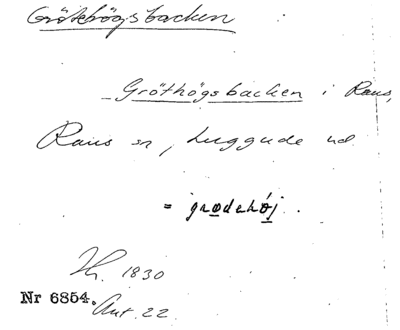 Gröthögsbacken
Gröthögsbacken i Raus,
Raus sn, Luggude hd
= grødehøj.
1830
Nr 6854. Ant. 22.